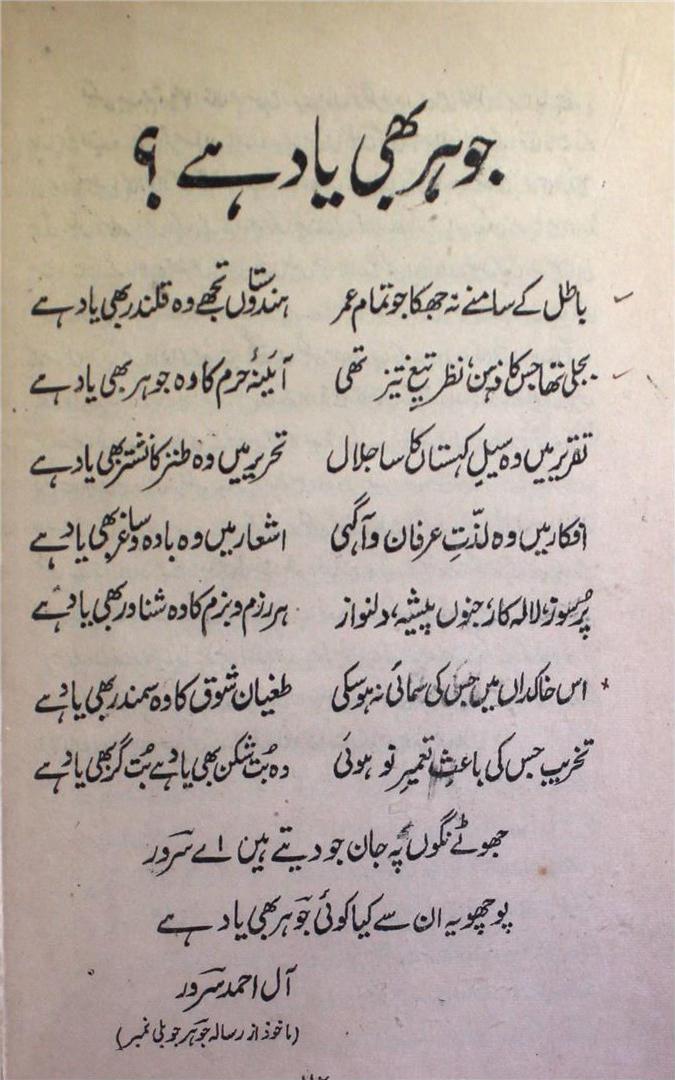 جوہر بھی یاد ہے ؟
باطل کے سامنے نہ جھکا جو تمام عمر ہندوستاں تجھے وہ قلندر بھی یاد ہے
بجلی تھا جس کا ذہن، نظر تیغِ تیز تھی آئینۂ حرم کا وہ جوہر بھی یاد ہے
تقریر میں وہ سیلِ کہستاں کا سا جلال تحریر میں وہ طنز کا نشتر بھی یاد ہے
افکار میں وہ لذّتِ عرفان و آگہی اشعار میں وہ بادہ و ساغر بھی یاد ہے
پُرسوز، لالہ کار، جنوں پیشہ، دلنواز ہر رزم و بزم کا وہ شناور بھی یاد ہے
اس خاکداں میں جس کی سمائی نہ ہو سکی طغیان شوق کا وہ سمندر بھی یاد ہے
تخریب جس کی باعثِ تعمیرِ نو ہوئی وہ بُت شکن بھی یاد ہے بُت گر بھی یاد ہے
جھوٹے نگوں پہ جان جو دیتے ہیں اے سرور
پوچھو یہ ان سے کیا کوئی جوہر بھی یاد ہے
آل احمد سرور
(ماخوذ از رسالہ جوہر جوبلی نمبر)